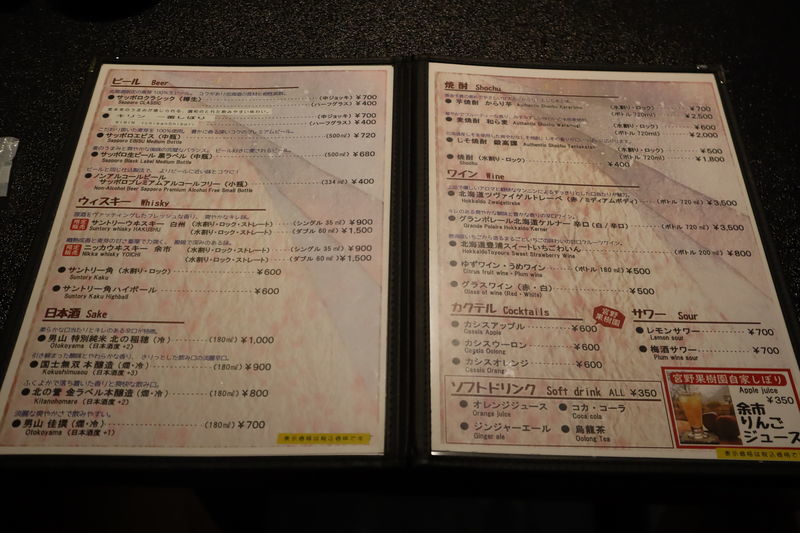 ビール Beer
サッポロクラシック (樽生) (中ジョッキ) ¥700
Sapporo CLASSIC (ハーフグラス) ¥400
キリン 一番しぼり (中ジョッキ) ¥700
(ハーフグラス) ¥400
サッポロエビス (中瓶) (500㎖) ¥720
Sapporo EBISU Medium Bottle
サッポロ生ビール 黒ラベル (中瓶) (500㎖) ¥680
Sapporo Black Label Medium Bottle
ノンアルコールビール
サッポロプレミアムアルコールフリー (小瓶) (334㎖) ¥400
Non-Alcohol Beer Sapporo Premium Alcohol Free Small Bottle
ウィスキー Whisky
サントリーウヰスキー 白州 (水割り・ロック・ストレート) (シングル 35㎖) ¥900
Suntory whisky HAKUSHU (水割り・ロック・ストレート) (ダブル 60㎖) ¥1,500
ニッカウヰスキー 余市 (水割り・ロック・ストレート) (シングル 35㎖) ¥900
Nikka whisky YOICHI (水割り・ロック・ストレート) (ダブル 60㎖) ¥1,500
サントリー角 (水割り・ロック) ¥600
Suntory Kaku
サントリー角ハイボール ¥600
Suntory Kaku Highball
日本酒 Sake
柔らかな口当たりとキレのある辛口が特徴。
男山 特別純米 北の稲穂 (冷) (180㎖) ¥1,000
Otokoyama (日本酒度 +2)
国士無双 本醸造 (燗・冷) (180㎖) ¥900
Kokushimusou (日本酒度 +3)
ふくよかで落ち着いた香りと爽快な飲み口。
北の誉 金ラベル 本醸造 (燗・冷) (180㎖) ¥800
Kitanohomare (日本酒度 +2)
淡麗な爽やかさで飲みやすい。
男山 佳撰 (燗・冷) (180㎖) ¥700
Otokoyama (日本酒度 +1)
表示価格は税込価格です
焼酎 Shochu
芋焼酎 からり芋 (水割り・ロック) ¥700
(ボトル 720㎖) ¥2,500
麦焼酎 和ら麦 (水割り・ロック) ¥600
(ボトル 720㎖) ¥2,000
しそ焼酎 鍛高譚 (水割り・ロック) ¥500
(ボトル 720㎖) ¥1,800
焼酎 (水割り・ロック) ¥400
Shochu
ワイン Wine
北海道ツヴァイゲルトレーベ (赤/ミディアムボディ) (ボトル 720㎖) ¥3,500
Hokkaido Zweigeltrebe
グランポレール北海道ケルナー 辛口 (白/辛口) (ボトル 720㎖) ¥3,500
Grande Polaire Hokkaido Kerner
北海道豊浦スイートいちごわいん (ボトル 200㎖) ¥800
Hokkaido Toyoura Sweet Strawberry Wine
ゆずワイン・うめワイン (ボトル 180㎖) ¥500
Citrus fruit wine・Plum wine
グラスワイン (赤・白) ¥500
Glass of wine (Red・White)
カクテル Cocktails
カシスアップル ¥600
Cassis Apple
カシスウーロン ¥600
Cassis Oolong
カシスオレンジ ¥600
Cassis Orange
宮野果樹園
サワー Sour
レモンサワー ¥700
Lemon sour
梅酒サワー ¥700
Plum wine sour
ソフトドリンク Soft drink ALL ¥350
オレンジジュース
Orange juice
コカ・コーラ
Coca cola
ジンジャーエール
Ginger ale
烏龍茶
Oolong Tea
宮野果樹園自家しぼり
Apple juice
¥350
余市
りんご
ジュース
表示価格は税込価格で